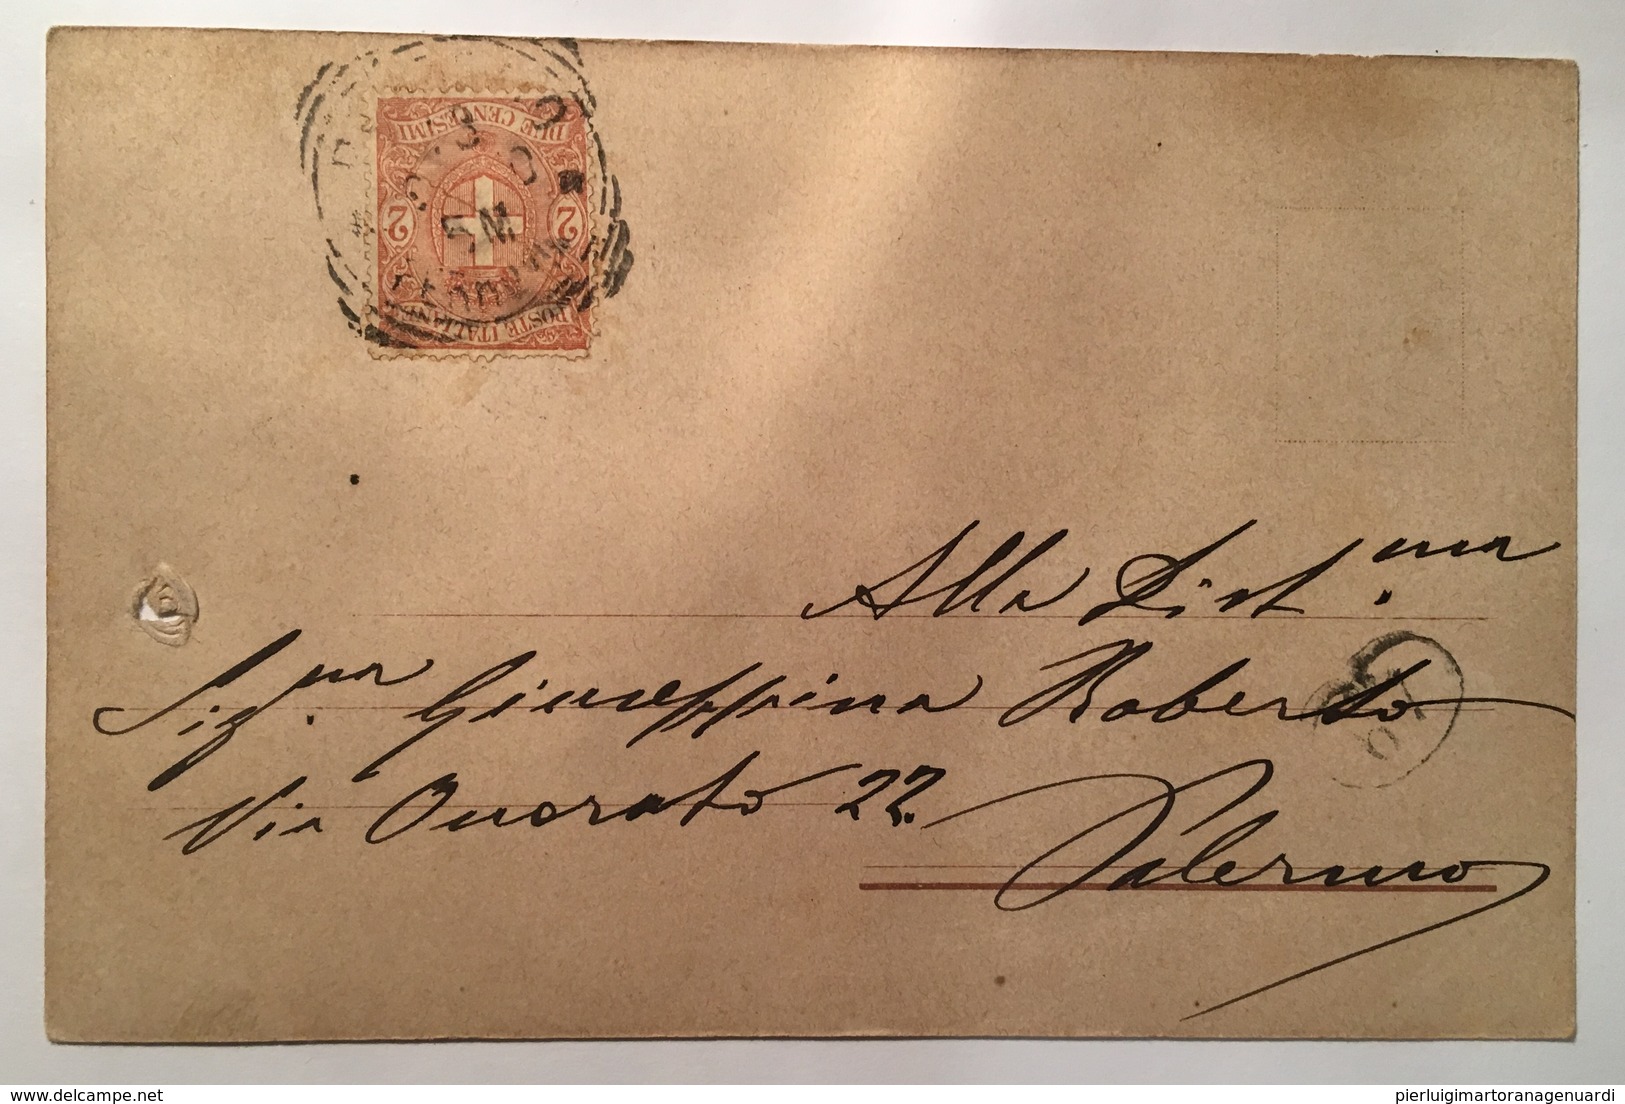 DUE CENTESIMI
2 2
POSTE ITALIANE
Alla Dist.ma
Sig.na Giuseppina Roberto
Via Onorato 22.
Palermo
delcampe.net
pierluigimartoranagenuardi